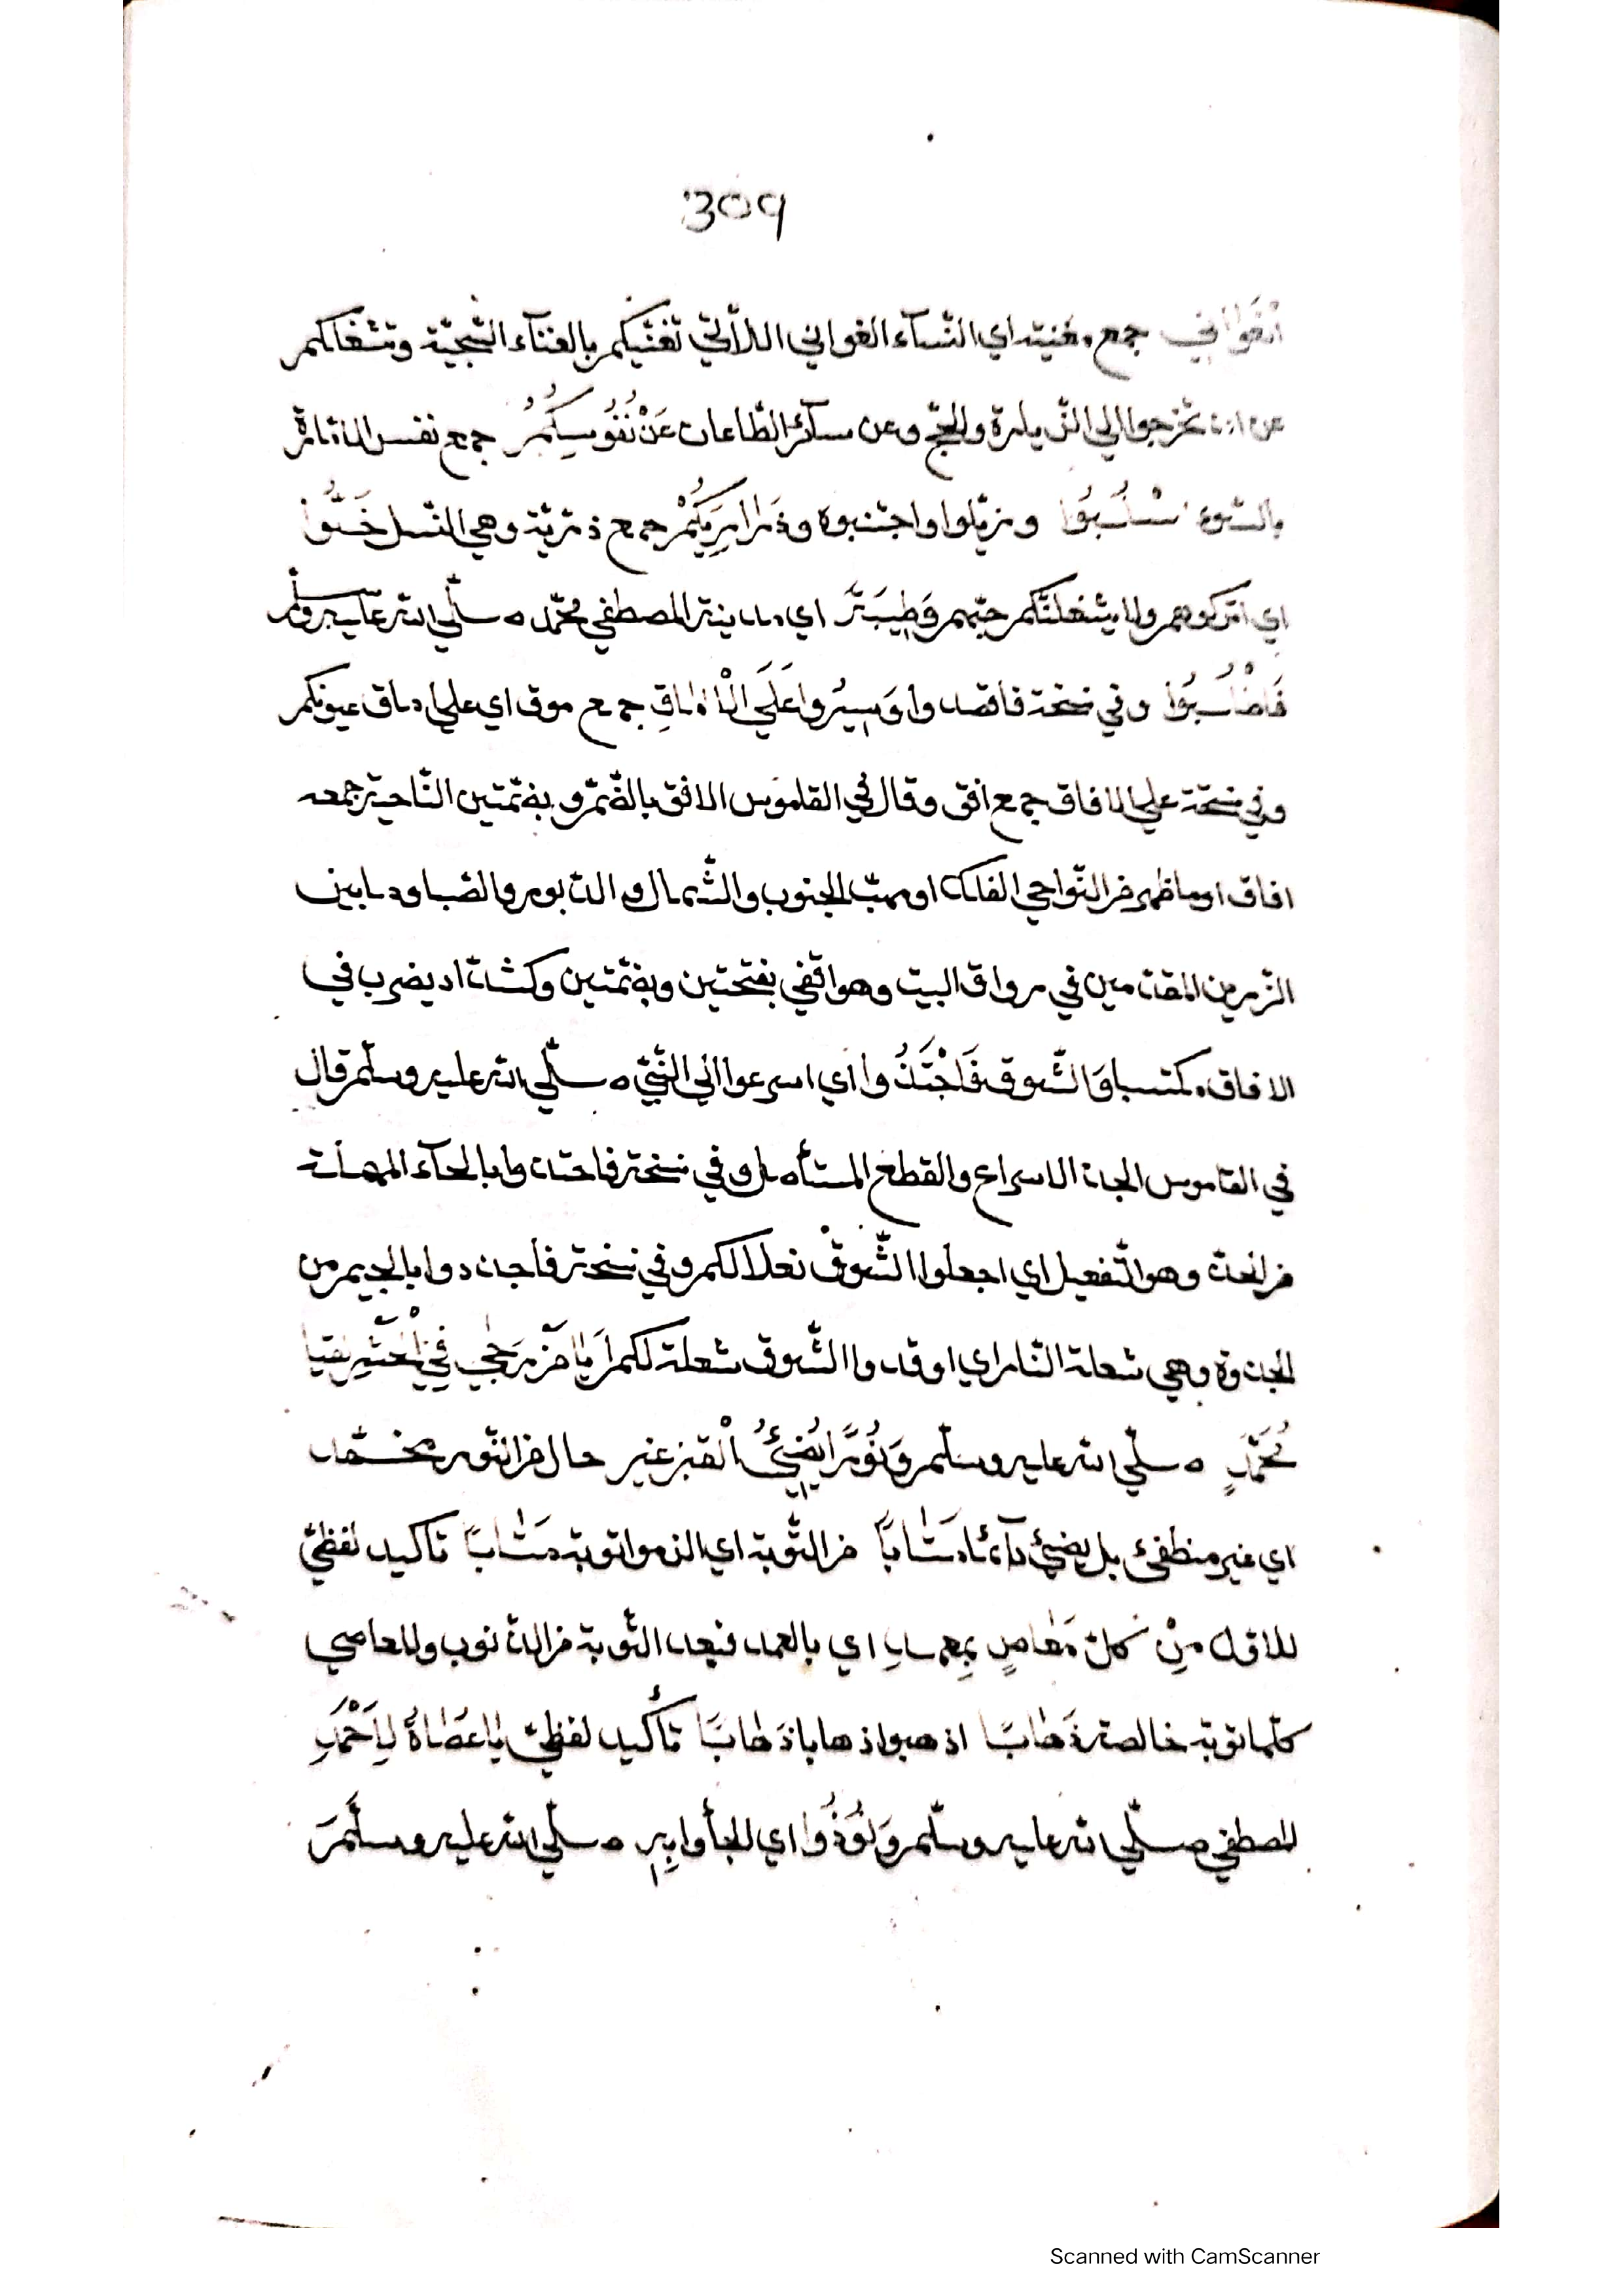 309
الغواني جمع مغنية اي النّسآء الغواني اللآتي تغنّيكم بالغنآء الشّجيّة وتشغلكم
عن ان تخرجوا الي الزّيارة والحجّ وعن سآئر الطّاعات عَنْ نُفُوسِكُمُ جمع نفس الامّارة
بالسّوء وزيّلوا واجتنبوه وذَرَارِيِّكُمْ جمع ذرّيّة وهي النّسل خَلُّوا
اي اتركوهم ولا يشغلنّكم حبّهم وَطِيبَةَ اي مدينة المصطفي محمّد صلّي الله عليه وسلّم
وفي نسخة فاقصدوا وَسِيرُوا عَلَي الْاٰمَاقِ جمع موق اي علي اماق عيونكم
وفي نسخة علي الافاق جمع افق وقال في القاموس الافق بالضّمّ وبضمّتين النّاحية جمعه
افاق او ما ظهر من النّواحي الفلك او مهبّ الجنوب والشّمال والدّبور والصّبا وما بين
الزّرين المقدّمين في رواق البيت وهو افقي بفتحتين وبضمّتين وكشدّاد يضرب في
الافاق مكتسبا وَالشّوق فَاجْتَذُوا اي اسرعوا الي النّبيّ صلّي الله عليه وسلّم قال
في القاموس الجذ الاسراع والقطع المستأصل وفي نسخة فاحتذوا بالحآء المهملة
من وهو التّفعيل اي اجعلوا الشّوقْ نعلا لكم وفي نسخة فاجذوا بالجيم من
الجذوة وهي شعلة النّار اي اوقدوا الشّوق شعلة لكم اَيَا مَنْ رَجٰي فِي
مُحَمَّدٍ صلّي الله عليه وسلّم وَنُوْرًا يُضِيْئُ الْقبر غير حال من النّور مخمّد
اي غير منطفئ بل يضيئ دآئما مَتَٰابًا من التّوبة اي الزموا توبة مَتَٰابًا تاكيد لفظيّ
للاوّل مِنْ كلّ مَعٰاصٍ بِعمدٍ اي بالعمد فيعد التّوبة من الذّنوب والمعاصي
كلّها توبة خالصة ذَهٰابًا اذهبوا ذهابا ذَهٰابًا تأكيد لفظيّ يٰا عُصٰاةُ لِاَحْمَدِ
المصطفي صلّي الله عليه وسلّم وَلُوْذُوا اي الجأوا بِهِ صلّي الله عليه وسلّمَ
Scanned with CamScanner